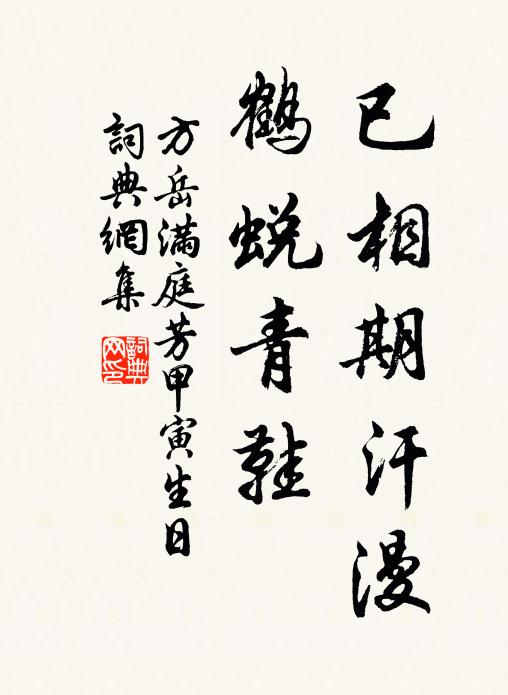 已相期汗漫
鶴蛻青鞋
方岳滿庭芳甲寅生日
詞典網集
詞典網印